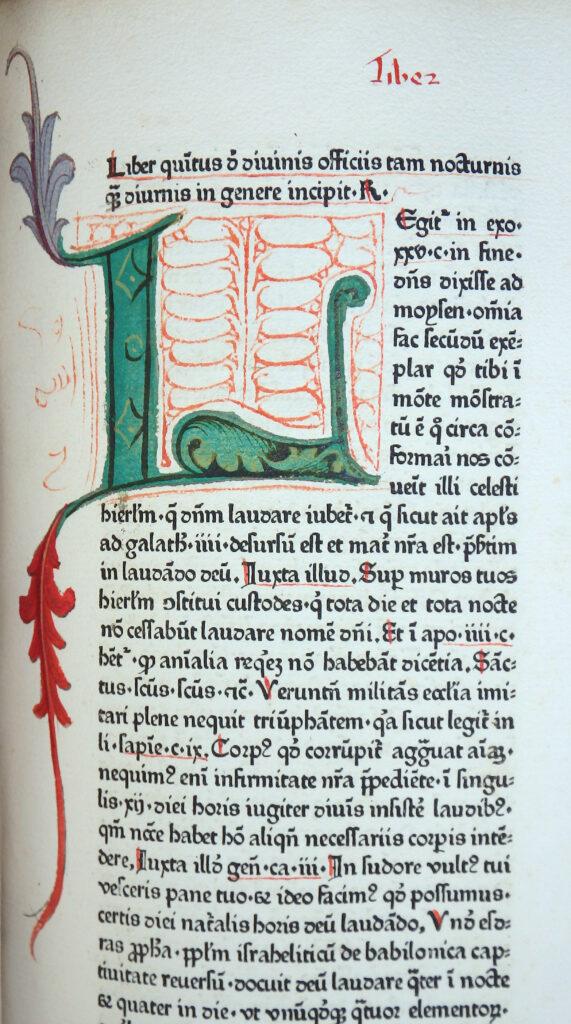 Liber
Liber quītus ꝺ̄ ꝺiuinis officiis tam nocturnis
q̄ꝫ ꝺiurnis in genere incipit · R̃ ·
LEgit᷑ in exo·
xxv·c·in fine·
ꝺn̄s ꝺixisse aꝺ
moysen·om̄ia
fac secūꝺū exē⸗
plar qꝺ̓ tibi ī
mōte mōstra⸗
tū ē q̄ circa cō⸗
formaī nos cō⸗
ueīt illi celesti
hierl̄m·q̄ ꝺn̄m lauꝺare iubet᷑·⁊ q̄ sicut ait apl̄s
aꝺ galath̄·iiii·ꝺesursū est et mat᷑ nr̄a est·ꝓph̄tim
in lauꝺāꝺo ꝺeū. Iuxta illuꝺ. Suꝑ muros tuos
hierl̄m ↄstitui custoꝺes·q̄ tota ꝺie et tota nocte
nō cessabūt lauꝺare nomē ꝺn̄i. Et ī apo·iiii·c·
h̄et᷑·ꝙ an̄ialia req̄eꝫ nō habebāt ꝺicētia. Sāc⸗
tus·sc̄us·sc̄us·⁊c̄. Veruntn̄ militās eccl̄ia imi⸗
tari plene nequit triūphātem·q̄a sicut legit᷑ in
li·sapiē·c·ix. Corpꝰ qꝺ̓ corrūpit᷑ aggͣuat aīaꝫ·
nequimꝰ eni infirmitate nr̄a p̄peꝺiēte·ī singu⸗
lis·xij·ꝺiei horis iugiter ꝺiuīs insistē lauꝺibꝰ·
qm̄ nc̄ce habet hō aliqn̄ necessariis corꝑis intē⸗
ꝺere. Iuxta illꝺ̓ gen̄·ca·iii. In suꝺore vultꝰ tui
vesceris pane tuo·⁊ iꝺeo facimꝰ qꝺ̓ possumus·
certis ꝺiei nat᷑alis horis ꝺeū lauꝺāꝺo. Vnꝺ̓ esꝺ⸗
ras ꝓph̄a·ppl̄m israheliticū ꝺe babilonica cap⸗
tiuitate reuersū·ꝺocuit ꝺeū lauꝺare q̄ter ī nocte
⁊ quater in ꝺie·vt vnūqꝺ̓qꝫ q̄tuor elementoꝝ·